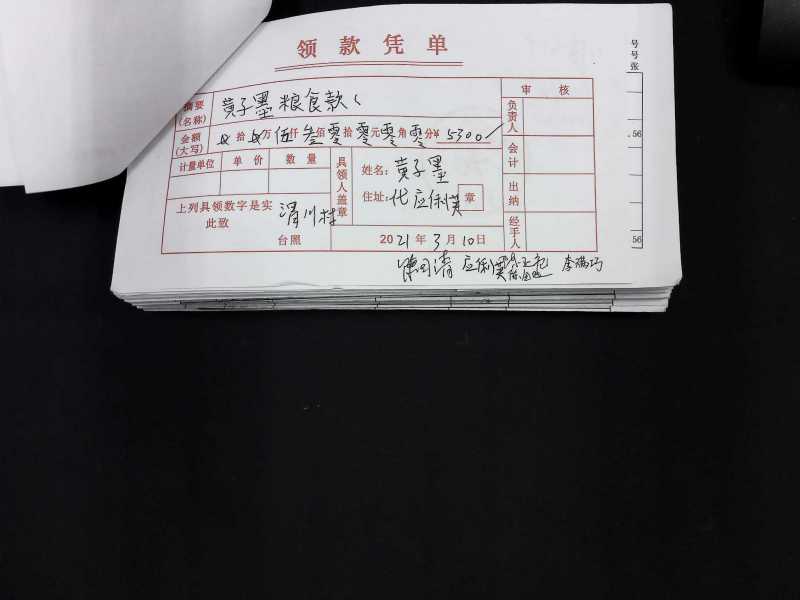 领款凭单
号号张
摘要(名称) 黄子墨粮食款
审核
金额(大写) 拾 万 伍仟 叁佰 零拾 零元 零角 零分 ¥5300
负责人
.56
计量单位 单价 数量
具领人盖章
姓名: 黄子墨
会计
住址: 代应俐英 章
出纳
上列具领数字是实
此致
渭川村
台照
2021年3月10日
经手人
56
应俐英 李满巧